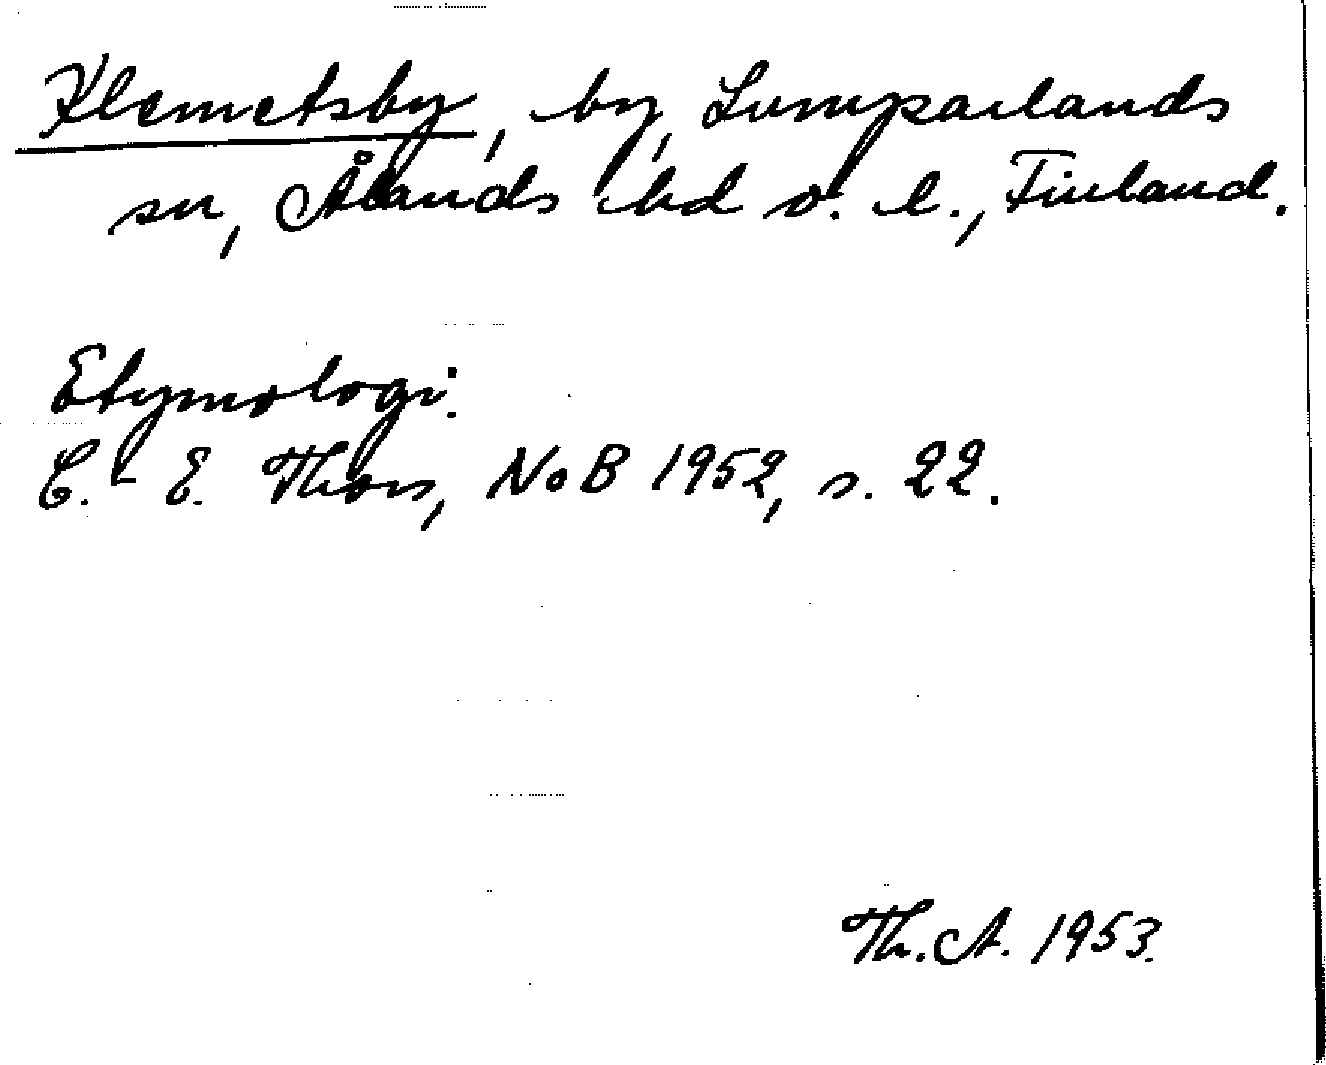 Klemetsby, by, Lumparlands
sn, Ålands hd o. l., Finland.
Etymologi:
C.-E. Thors, NoB 1952, s. 22.
Th. A. 1953.